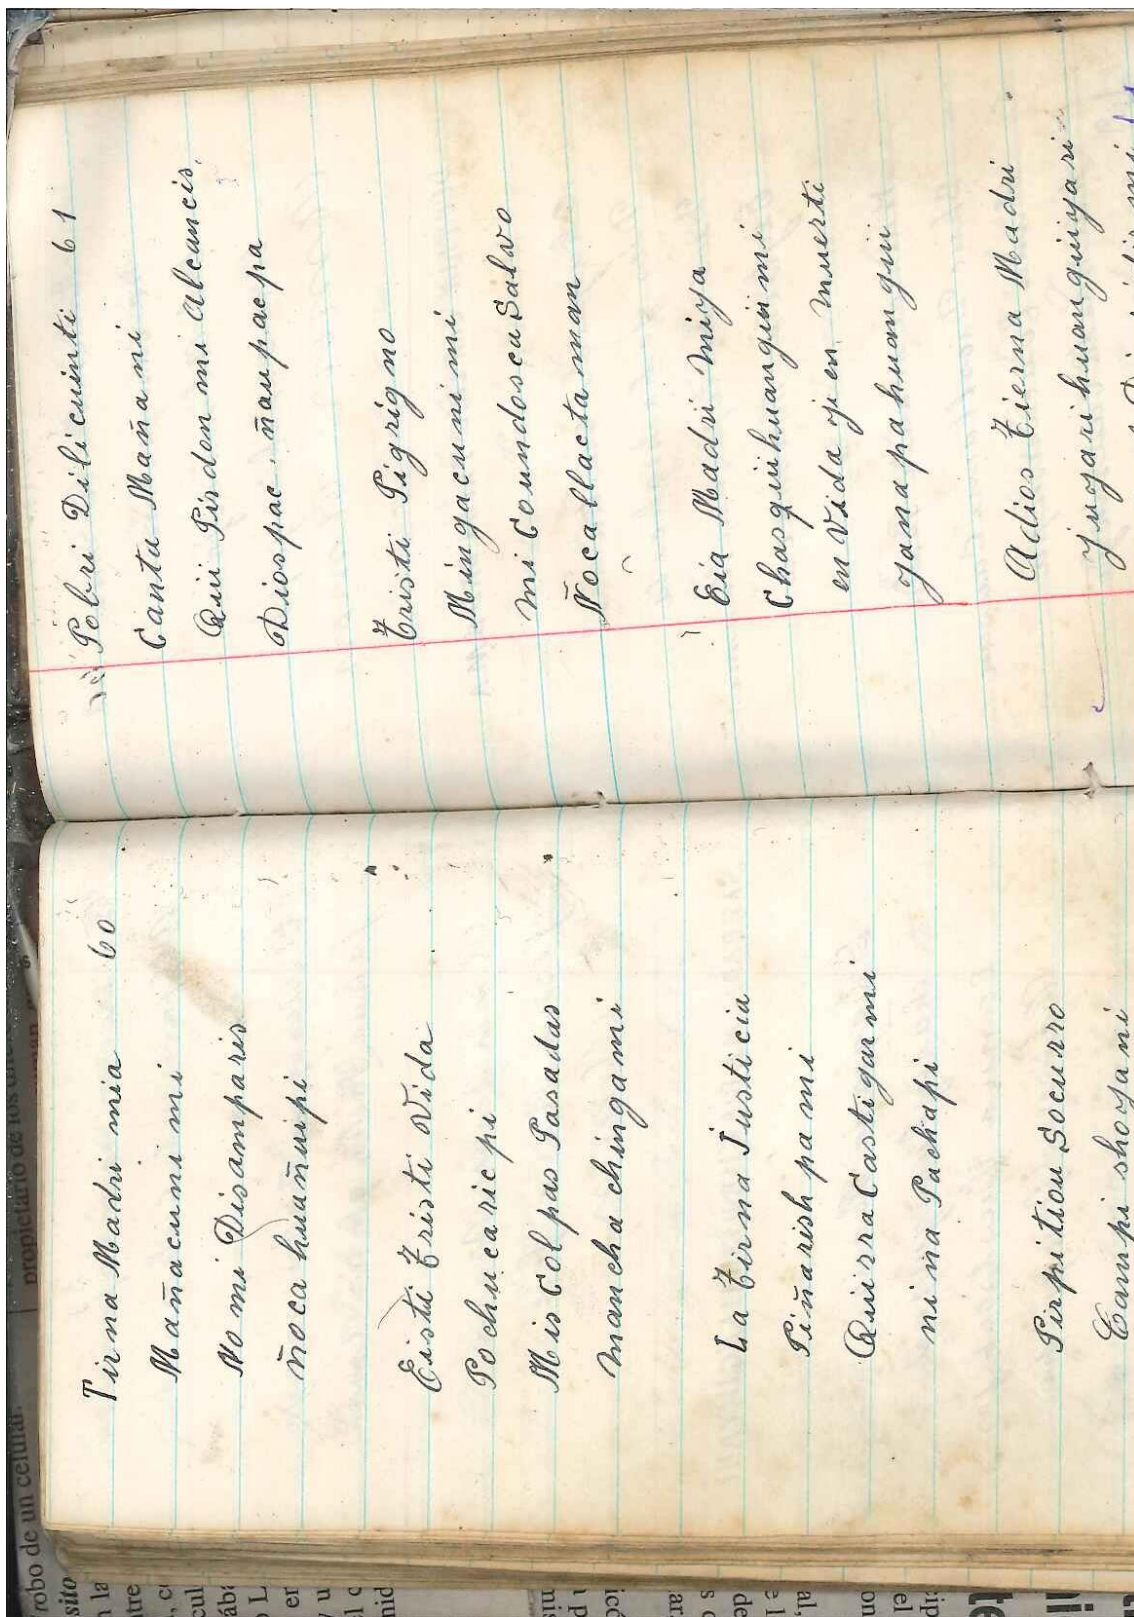 Tirna Madri mia 60
Mañacuni mi
No mi Disamparis
ñoca huañuipi
Eisti Tristi Vida
Pochucaric pi
Mis Colpas Pasadas
mancha chingami
La Tirna Justicia
Piñarishpa mi
Quirra Castigarmi
nina Pachapi
Pirpitiou Socurro
Campi shoyani
Pobri Dilicuinti 61
Canta Mañani
Qui Pirdon mi Alcancis,
Diospac ñaupacpa
Tristi Pigrigno
Mingacunimi
mi Coundoscu Salvo
Ñocallactaman
Eia Madri miya
Chasquihuanguimi
en Vida y en muerti
yanapahuangui
Adios Tierna Madri
yuyarihuanguiyari
propietario de los
robo de un celular.